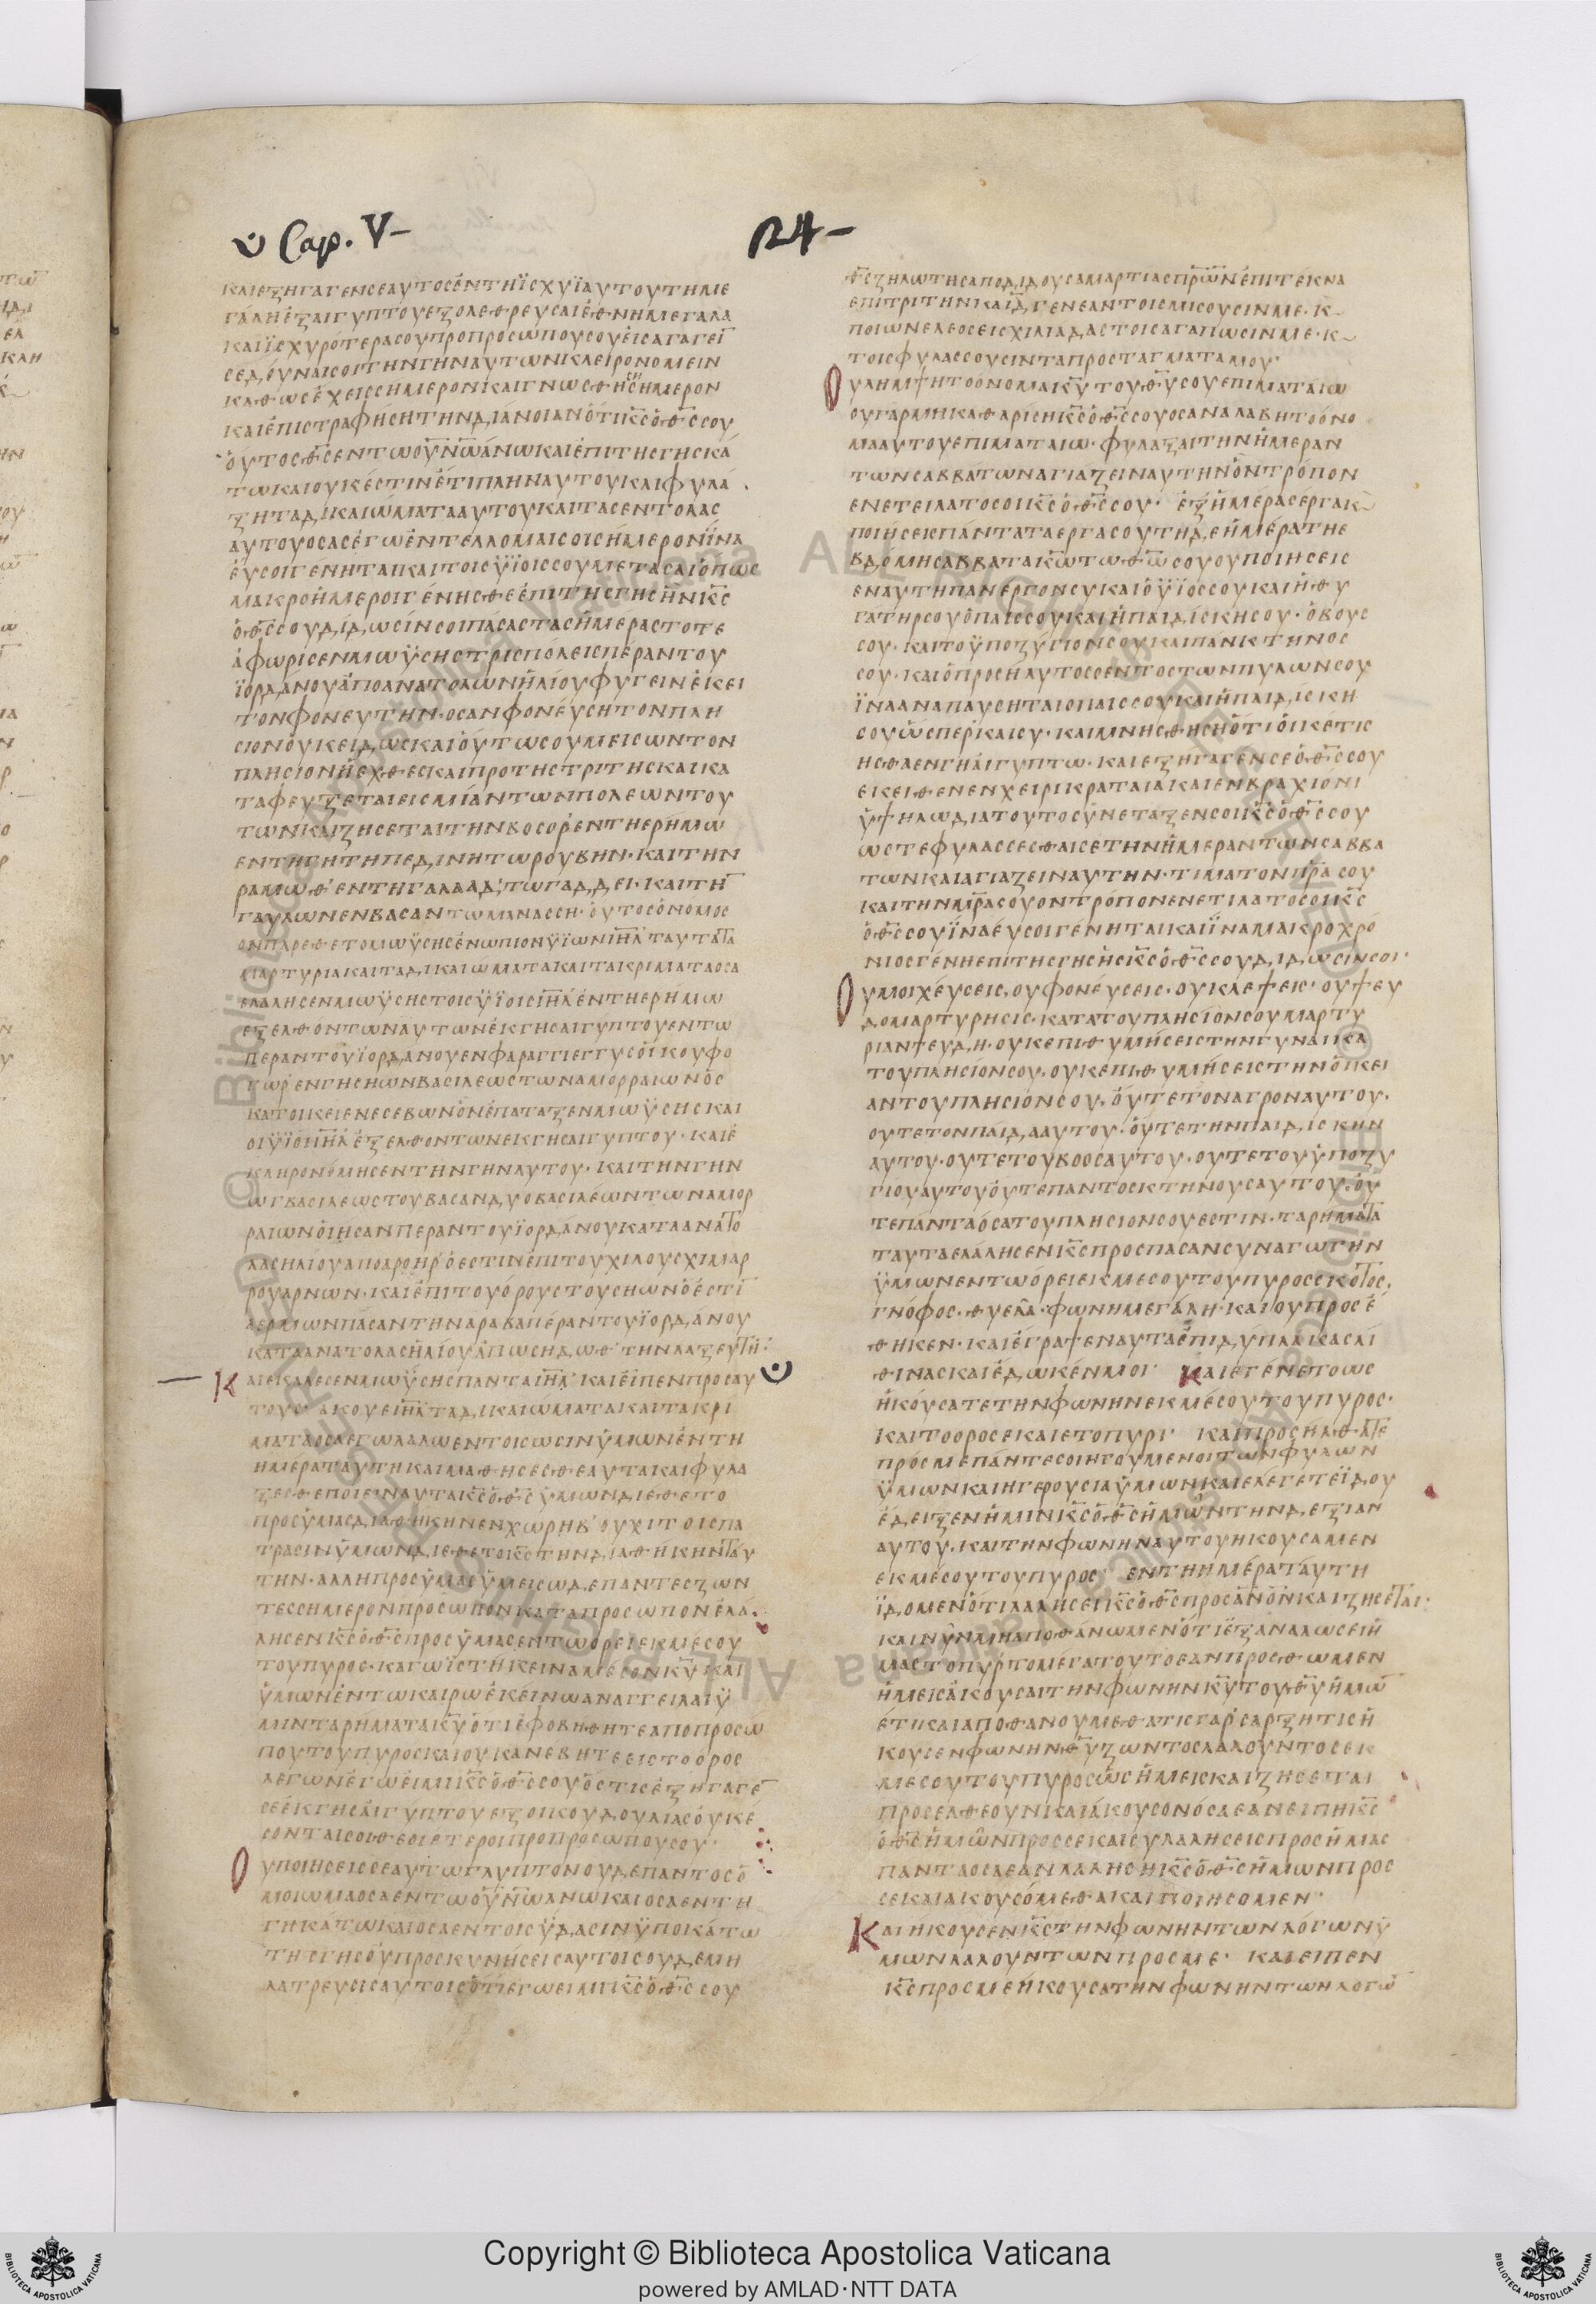 Cap. V-
24-
ΚΑΙΕΞΗΓΑΓΕΝΣΕΑΥΤΟΣΕΝΤΗΙΣΧΥΙΑΥΤΟΥΤΗΜΕ
ΓΑΛΗΕΞΑΙΓΥΠΤΟΥΕΞΟΛΕΘΡΕΥΣΑΙΕΘΝΗΜΕΓΑΛΑ
ΚΑΙΙΣΧΥΡΟΤΕΡΑΣΟΥΠΡΟΠΡΟΣΩΠΟΥΣΟΥΕΙΣΑΓΑΓΕΙ̅
ΣΕΔΟΥΝΑΙΣΟΙΤΗΝΓΗΝΑΥΤΩΝΚΛΕΙΡΟΝΟΜΕΙΝ
ΚΑΘΩΣΕΧΕΙΣΣΗΜΕΡΟΝΚΑΙΓΝΩΣΘΗΣΗΣΗΜΕΡΟΝ
ΚΑΙΕΠΙΣΤΡΑΦΗΣΗΤΗΔΙΑΝΟΙΑΝΟΤΙΚ̅Σ̅ΟΘ̅Σ̅ΣΟΥ
ΟΥΤΟΣΘ̅Σ̅ΕΝΤΩΟΥ̅Ν̅Ω̅ΑΝΩΚΑΙΕΠΙΤΗΣΓΗΣΚΑ
ΤΩΚΑΙΟΥΚΕΣΤΙΝΕΤΙΠΛΗΝΑΥΤΟΥΚΑΙΦΥΛΑ
ΞΗΤΑΔΙΚΑΙΩΜΑΤΑΑΥΤΟΥΚΑΙΤΑΣΕΝΤΟΛΑΣ
ΑΥΤΟΥΟΣΑΣΕΓΩΕΝΤΕΛΛΟΜΑΙΣΟΙΣΗΜΕΡΟΝΙΝΑ
ΕΥΣΟΙΓΕΝΗΤΑΙΚΑΙΤΟΙΣΥΙΟΙΣΣΟΥΜΕΤΑΣΑΙΟΠΩΣ
ΜΑΚΡΟΗΜΕΡΟΙΓΕΝΗΣΘΕΕΠΙΤΗΣΓΗΣΗΝΚ̅Σ̅
ΟΘ̅Σ̅ΣΟΥΔΙΔΩΣΙΝΣΟΙΠΑΣΑΣΤΑΣΗΜΕΡΑΣΤΟΤΕ
ΑΦΩΡΙΣΕΝΜΩΥΣΗΣΤΡΙΣΠΟΛΕΙΣΠΕΡΑΝΤΟΥ
ΙΟΡΔΑΝΟΥΑΠΟΑΝΑΤΟΛΩΝΗΛΙΟΥΦΥΓΕΙΝΕΚΕΙ
ΤΟΝΦΟΝΕΥΤΗΝ·ΟΣΑΝΦΟΝΕΥΣΗΤΟΝΠΛΗ
ΣΙΟΝΟΥΚΕΙΔΩΣΚΑΙΟΥΤΩΣΟΥΜΕΙΣΩΝΤΟΝ
ΠΛΗΣΙΟΝΗΕΧΘΕΣΚΑΙΠΡΟΤΗΣΤΡΙΤΗΣΚΑΙΚΑ
ΤΑΦΕΥΞΕΤΑΙΕΙΣΜΙΑΝΤΩΝΠΟΛΕΩΝΤΟΥ
ΤΩΝΚΑΙΖΗΣΕΤΑΙΤΗΝΒΟΣΟΡΕΝΤΗΕΡΗΜΩ
ΕΝΤΗΓΗΤΗΠΕΔΙΝΗΤΩΡΟΥΒΗΝ·ΚΑΙΤΗΝ
ΡΑΜΩΘΕΝΤΗΓΑΛΑΑΔΤΩΓΑΔΔΕΙ·ΚΑΙΤΗ̅
ΓΑΥΛΩΝΕΝΒΑΣΑΝΤΩΜΑΝΑΣΣΗ·ΟΥΤΟΣΟΝΟΜΟΣ
ΟΝΠΑΡΕΘΕΤΟΜΩΥΣΗΣΕΝΩΠΙΟΝΥΙΩΝΙ̅Η̅Λ̅ΤΑΥΤΑΤΑ
ΜΑΡΤΥΡΙΑΚΑΙΤΑΔΙΚΑΙΩΜΑΤΑΚΑΙΤΑΚΡΙΜΑΤΑΟΣΑ
ΕΛΑΛΗΣΕΝΜΩΥΣΗΣΤΟΙΣΥΙΟΙΣΙ̅Η̅Λ̅ΕΝΤΗΕΡΗΜΩ
ΕΞΕΛΘΟΝΤΩΝΑΥΤΩΝΕΚΓΗΣΑΙΓΥΠΤΟΥΕΝΤΩ
ΠΕΡΑΝΤΟΥΙΟΡΔΑΝΟΥΕΝΦΑΡΑΓΓΙΕΓΓΥΣΟΙΚΟΥΦΟ
ΓΩΡΕΝΓΗΣΗΩΝΒΑΣΙΛΕΩΣΤΩΝΑΜΟΡΡΑΙΩΝΟΣ
ΚΑΤΟΙΚΕΙΕΝΕΣΕΒΩΝΟΝΕΠΑΤΑΞΕΝΜΩΥΣΗΣΚΑΙ
ΟΙΥΙΟΙΙ̅Η̅Λ̅ΕΞΕΛΘΟΝΤΩΝΕΚΓΗΣΑΙΓΥΠΤΟΥ·ΚΑΙΕ
ΚΛΗΡΟΝΟΜΗΣΕΝΤΗΝΓΗΝΑΥΤΟΥ·ΚΑΙΤΗΝΓΗΝ
ΩΓΒΑΣΙΛΕΩΣΤΟΥΒΑΣΑΝΔΥΟΒΑΣΙΛΕΩΝΤΩΝΑΜΟΡ
ΡΑΙΩΝΟΙΗΣΑΝΠΕΡΑΝΤΟΥΙΟΡΔΑΝΟΥΚΑΤΑΑΝΑΤΟ
ΛΑΣΗΛΙΟΥΑΠΟΑΡΟΗΡΟΕΣΤΙΝΕΠΙΤΟΥΧΙΛΟΥΣΧΙΜΑΡ
ΡΟΥΑΡΝΩΝ·ΚΑΙΕΠΙΤΟΥΟΡΟΥΣΤΟΥΣΗΩΝΟΕΣΤΙ̅
ΑΕΡΜΩΝΠΑΣΑΝΤΗΝΑΡΑΒΑΠΕΡΑΝΤΟΥΙΟΡΔΑΝΟΥ
ΚΑΤΑΑΝΑΤΟΛΑΣΗΛΙΟΥΑΠΩΣΗΔΩΘΤΗΝΛΑΞΕΥΤΗ:
ΚΑΙΕΚΑΛΕΣΕΝΜΩΥΣΗΣΠΑΝΤΑΙ̅Η̅Λ̅ΚΑΙΕΙΠΕΝΠΡΟΣΑΥ
ΤΟΥΣΑΚΟΥΕΙ̅Η̅Λ̅ΤΑΔΙΚΑΙΩΜΑΤΑΚΑΙΤΑΚΡΙ
ΜΑΤΑΟΣΑΕΓΩΛΑΛΩΕΝΤΟΙΣΩΣΙΝΥΜΩΝΕΝΤΗ
ΗΜΕΡΑΤΑΥΤΗΚΑΙΜΑΘΗΣΕΣΘΕΑΥΤΑΚΑΙΦΥΛΑ
ΞΕΣΘΕΠΟΙΕΙΝΑΥΤΑΚ̅Σ̅ΟΘ̅Σ̅ΥΜΩΝΔΙΕΘΕΤΟ
ΠΡΟΣΥΜΑΣΔΙΑΘΗΚΗΝΕΝΧΩΡΗΒΟΥΧΙΤΟΙΣΠΑ
ΤΡΑΣΙΝΥΜΩΝΔΙΕΘΕΤΟΚ̅Σ̅ΤΗΝΔΙΑΘΗΚΗΝΤΑΥ
ΤΗΝ·ΑΛΛΗΠΡΟΣΥΜΑΣΥΜΕΙΣΩΔΕΠΑΝΤΕΣΖΩΝ
ΤΕΣΣΗΜΕΡΟΝΠΡΟΣΩΠΟΝΚΑΤΑΠΡΟΣΩΠΟΝΕΛΑ
ΛΗΣΕΝΚ̅Σ̅ΟΘ̅Σ̅ΠΡΟΣΥΜΑΣΕΝΤΩΟΡΕΙΕΚΜΕΣΟΥ
ΤΟΥΠΥΡΟΣ·ΚΑΓΩΙΣΤΗΚΕΙΝΑΜΕΣΟΝΚ̅Υ̅ΚΑΙ
ΥΜΩΝΕΝΤΩΚΑΙΡΩΕΚΕΙΝΩΑΝΑΓΓΕΙΛΑΙΥ
ΜΙΝΤΑΡΗΜΑΤΑΚ̅Υ̅ΟΤΙΕΦΟΒΗΘΗΤΕΑΠΟΠΡΟΣΩ
ΠΟΥΤΟΥΠΥΡΟΣΚΑΙΟΥΚΑΝΕΒΗΤΕΕΙΣΤΟΟΡΟΣ
ΛΕΓΩΝΕΓΩΕΙΜΙΚ̅Σ̅ΟΘ̅Σ̅ΣΟΥΟΣΤΙΣΕΞΗΓΑΓΕ̅
ΣΕΕΚΓΗΣΑΙΓΥΠΤΟΥΕΞΟΙΚΟΥΔΟΥΛΙΑΣΟΥΚΕ
ΣΟΝΤΑΙΣΟΙΘΕΟΙΕΤΕΡΟΙΠΡΟΠΡΟΣΩΠΟΥΣΟΥ·
ΟΥΠΟΙΗΣΕΙΣΣΕΑΥΤΩΓΛΥΠΤΟΝΟΥΔΕΠΑΝΤΟΣΟ
ΜΟΙΩΜΑΟΣΑΕΝΤΩΟΥ̅Ν̅Ω̅ΑΝΩΚΑΙΟΣΑΕΝΤΗ
ΓΗΚΑΤΩΚΑΙΟΣΑΕΝΤΟΙΣΥΔΑΣΙΝΥΠΟΚΑΤΩ
ΤΗΣΓΗΣΟΥΠΡΟΣΚΥΝΗΣΕΙΣΑΥΤΟΙΣΟΥΔΕΜΗ
ΛΑΤΡΕΥΣΙΣΑΥΤΟΙΣΟΤΙΕΓΩΕΙΜΙΚ̅Σ̅ΟΘ̅Σ̅ΣΟΥ
Θ̅Σ̅ΖΗΛΩΤΗΣΑΠΟΔΙΔΟΥΣΑΜΑΡΤΙΑΣΠ̅Ρ̅Ω̅Ν̅ΕΠΙΤΕΚΝΑ
ΕΠΙΤΡΙΤΗΝΚΑΙΔ̅ΓΕΝΕΑΝΤΟΙΣΜΙΣΟΥΣΙΝΜΕ·Κ
ΠΟΙΩΝΕΛΕΟΣΕΙΣΧΙΛΙΑΔΑΣΤΟΙΣΑΓΑΠΩΣΙΝΜΕ·Κ
ΤΟΙΣΦΥΛΑΣΣΟΥΣΙΝΤΑΠΡΟΣΤΑΓΜΑΤΑΜΟΥ·
ΟΥΛΗΜΨΗΤΟΟΝΟΜΑΚ̅Υ̅ΤΟΥΘ̅Υ̅ΣΟΥΕΠΙΜΑΤΑΙΩ
ΟΥΓΑΡΜΗΚΑΘΑΡΙΣΗΚ̅Σ̅ΟΘ̅Σ̅ΣΟΥΟΣΑΝΑΛΑΒΗΤΟΟΝΟ
ΜΑΑΥΤΟΥΕΠΙΜΑΤΑΙΩ·ΦΥΛΑΞΑΙΤΗΝΗΜΕΡΑΝ
ΤΩΝΣΑΒΒΑΤΩΝΑΓΙΑΖΕΙΝΑΥΤΗΝΟΝΤΡΟΠΟΝ
ΕΝΕΤΕΙΛΑΤΟΣΟΙΚ̅Σ̅ΟΘ̅Σ̅ΣΟΥ· ΕΞΗΜΕΡΑΣΕΡΓΑΚ
ΠΟΙΗΣΕΙΣΠΑΝΤΑΤΑΕΡΓΑΣΟΥΤΗΔΕΗΜΕΡΑΤΗΕ
ΒΔΟΜΗΣΑΒΒΑΤΑΚ̅Ω̅ΤΩΘ̅Ω̅ΣΟΥΟΥΠΟΙΗΣΕΙΣ
ΕΝΑΥΤΗΠΑΝΕΡΓΟΝΣΥΚΑΙΟΥΙΟΣΣΟΥΚΑΙΗΘΥ
ΓΑΤΗΡΣΟΥΟΠΑΙΣΣΟΥΚΑΙΗΠΑΙΔΙΣΚΗΣΟΥ·ΟΒΟΥΣ
ΣΟΥ·ΚΑΙΤΟΥΠΟΖΥΓΙΟΝΣΟΥΚΑΙΠΑΝΚΤΗΝΟΣ
ΣΟΥ·ΚΑΙΟΠΡΟΣΗΛΥΤΟΣΟΕΝΤΟΣΤΩΝΠΥΛΩΝΣΟΥ
ΙΝΑΑΝΑΠΑΥΣΗΤΑΙΟΠΑΙΣΣΟΥΚΑΙΗΠΑΙΔΙΣΚΗ
ΣΟΥΩΣΠΕΡΚΑΙΣΥ·ΚΑΙΜΝΗΣΘΗΣΗΟΤΙΟΙΚΕΤΙΣ
ΗΣΘΑΕΝΓΗΑΙΓΥΠΤΩ·ΚΑΙΕΞΗΓΑΓΕΝΣΕΟΘ̅Σ̅ΣΟΥ
ΕΚΕΙΘΕΝΕΝΧΕΙΡΙΚΡΑΤΑΙΑΚΑΙΕΝΒΡΑΧΙΟΝΙ
ΥΨΗΛΩΔΙΑΤΟΥΤΟΣΥΝΕΤΑΞΕΝΣΟΙΚ̅Σ̅ΟΘ̅Σ̅ΣΟΥ
ΩΣΤΕΦΥΛΑΣΣΕΣΘΑΙΣΕΤΗΝΗΜΕΡΑΝΤΩΝΣΑΒΒΑ
ΤΩΝΚΑΙΑΓΙΑΖΕΙΝΑΥΤΗΝ·ΤΙΜΑΤΟΝΠ̅Ρ̅Α̅ΣΟΥ
ΚΑΙΤΗΝΜ̅Ρ̅Α̅ΣΟΥΟΝΤΡΟΠΟΝΕΝΕΤΙΛΑΤΟΣΟΙΚ̅Σ̅
ΟΘ̅Σ̅ΣΟΥΙΝΑΕΥΣΟΙΓΕΝΗΤΑΙΚΑΙΙΝΑΜΑΚΡΟΧΡΟ
ΝΙΟΣΓΕΝΗΕΠΙΤΗΣΓΗΣΗΣΚ̅Σ̅ΟΘ̅Σ̅ΣΟΥΔΙΔΩΣΙΝΣΟΙ·
ΟΥΜΟΙΧΕΥΣΕΙΣ,ΟΥΦΟΝΕΥΣΕΙΣ·ΟΥΚΛΕΨΕΙΣ·ΟΥΨΕΥ
ΔΟΜΑΡΤΥΡΗΣΙΣ·ΚΑΤΑΤΟΥΠΛΗΣΙΟΝΣΟΥΜΑΡΤΥ
ΡΙΑΝΨΕΥΔΗ·ΟΥΚΕΠΙΘΥΜΗΣΕΙΣΤΗΝΓΥΝΑΙΚΑ
ΤΟΥΠΛΗΣΙΟΝΣΟΥ·ΟΥΚΕΠΙΘΥΜΗΣΕΙΣΤΗΝΟΙΚΕΙ
ΑΝΤΟΥΠΛΗΣΙΟΝΣΟΥ·ΟΥΤΕΤΟΝΑΓΡΟΝΑΥΤΟΥ·
ΟΥΤΕΤΟΝΠΑΙΔΑΑΥΤΟΥ·ΟΥΤΕΤΗΝΠΑΙΔΙΣΚΗΝ
ΑΥΤΟΥ·ΟΥΤΕΤΟΥΒΟΟΣΑΥΤΟΥ·ΟΥΤΕΤΟΥΥΠΟΖΥ
ΓΙΟΥΑΥΤΟΥΟΥΤΕΠΑΝΤΟΣΚΤΗΝΟΥΣΑΥΤΟΥ·ΟΥ
ΤΕΠΑΝΤΑΟΣΑΤΟΥΠΛΗΣΙΟΝΣΟΥΕΣΤΙΝ·ΤΑΡΗΜΑΤΑ
ΤΑΥΤΑΕΛΑΛΗΣΕΝΚ̅Σ̅ΠΡΟΣΠΑΣΑΝΣΥΝΑΓΩΓΗΝ
ΥΜΩΝΕΝΤΩΟΡΕΙΕΚΜΕΣΟΥΤΟΥΠΥΡΟΣΣΚΟΤΟΣ,
ΓΝΟΦΟΣ·ΘΥΕΛΛΑ·ΦΩΝΗΜΕΓΑΛΗ·ΚΑΙΟΥΠΡΟΣΕ
ΘΗΚΕΝ·ΚΑΙΕΓΡΑΨΕΝΑΥΤΑΕΠΙΔΥΠΛΑΚΑΣΛΙ
ΘΙΝΑΣΚΑΙΕΔΩΚΕΝΜΟΙ· ΚΑΙΕΓΕΝΕΤΟΩΣ
ΗΚΟΥΣΑΤΕΤΗΝΦΩΝΗΝΕΚΜΕΣΟΥΤΟΥΠΥΡΟΣ·
ΚΑΙΤΟΟΡΟΣΕΚΑΙΕΤΟΠΥΡΙ· ΚΑΙΠΡΟΣΗΛΘΑΤΕ
ΠΡΟΣΜΕΠΑΝΤΕΣΟΙΗΓΟΥΜΕΝΟΙΤΩΝΦΥΛΩΝ
ΥΜΩΝΚΑΙΗΓΕΡΟΥΣΙΑΥΜΩΝΚΑΙΕΛΕΓΕΤΕΙΔΟΥ
ΕΔΕΙΞΕΝΗΜΙΝΚ̅Σ̅ΟΘ̅Σ̅ΗΜΩΝΤΗΝΔΕΞΙΑΝ
ΑΥΤΟΥ·ΚΑΙΤΗΝΦΩΝΗΝΑΥΤΟΥΗΚΟΥΣΑΜΕΝ
ΕΚΜΕΣΟΥΤΟΥΠΥΡΟΣ· ΕΝΤΗΗΜΕΡΑΤΑΥΤΗ
ΙΔΟΜΕΝΟΤΙΛΑΛΗΣΕΙΚ̅Σ̅ΟΘ̅Σ̅ΠΡΟΣΑ̅Ν̅Ο̅Ν̅ΚΑΙΖΗΣΕΤΑΙ:
ΚΑΙΝΥΝΜΗΑΠΟΘΑΝΩΜΕΝΟΤΙΕΞΑΝΑΛΩΣΕΙΗ
ΜΑΣΤΟΠΥΡΤΟΜΕΓΑΤΟΥΤΟΕΑΝΠΡΟΣΘΩΜΕΝ
ΗΜΕΙΣΑΚΟΥΣΑΙΤΗΝΦΩΝΗΝΚ̅Υ̅ΤΟΥΘ̅Υ̅ΗΜΩ̅
ΕΤΙΚΑΙΑΠΟΘΑΝΟΥΜΕΘΑΤΙΣΓΑΡΣΑΡΞΗΤΙΣΗ
ΚΟΥΣΕΝΦΩΝΗΝΘ̅Υ̅ΖΩΝΤΟΣΛΑΛΟΥΝΤΟΣΕΚ
ΜΕΣΟΥΤΟΥΠΥΡΟΣΩΣΗΜΕΙΣΚΑΙΖΗΣΕΤΑΙ
ΠΡΟΣΕΛΘΕΟΥΝΚΑΙΑΚΟΥΣΟΝΟΣΑΕΑΝΕΙΠΗΚ̅Σ̅
ΟΘ̅Σ̅ΗΜΩΝΠΡΟΣΣΕΚΑΙΣΥΛΑΛΗΣΕΙΣΠΡΟΣΗΜΑΣ
ΠΑΝΤΑΟΣΑΕΑΝΛΑΛΗΣΗΚ̅Σ̅ΟΘ̅Σ̅ΗΜΩΝΠΡΟΣ
ΣΕΚΑΙΑΚΟΥΣΟΜΕΘΑΚΑΙΠΟΙΗΣΟΜΕΝ·
ΚΑΙΗΚΟΥΣΕΝΚ̅Σ̅ΤΗΝΦΩΝΗΝΤΩΝΛΟΓΩΝΥ
ΜΩΝΛΑΛΟΥΝΤΩΝΠΡΟΣΜΕ· ΚΑΙΕΙΠΕΝ
Κ̅Σ̅ΠΡΟΣΜΕΗΚΟΥΣΑΤΗΝΦΩΝΗΝΤΩΝΛΟΓΩ̅
Copyright © Biblioteca Apostolica Vaticana
powered by AMLAD·NTT DATA